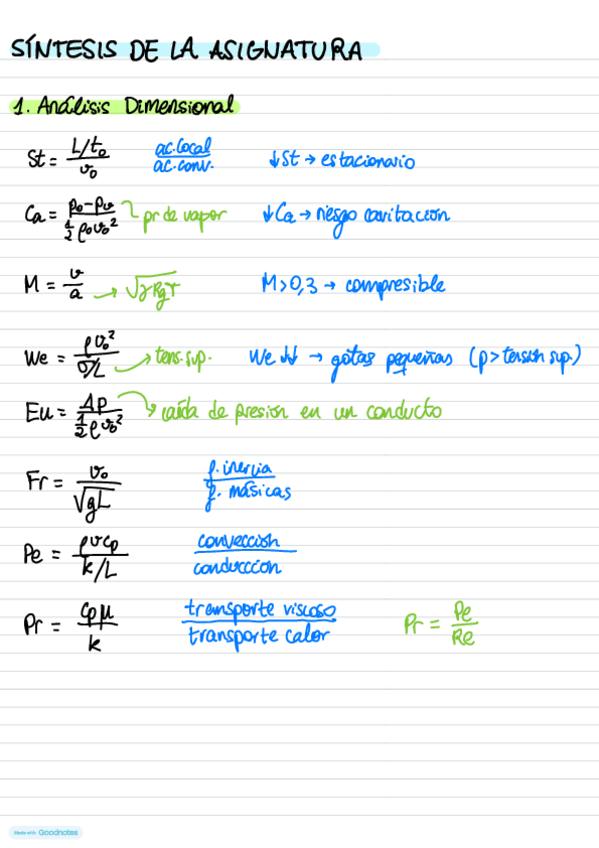 SÍNTESIS DE LA ASIGNATURA
1. Análisis Dimensional
St = (L/t₀)/v₀   ac.local/ac.conv.   ↓St → estacionario
Ca = (p₀-pᵥ)/(½ρ₀v₀²)   pr de vapor   ↓Ca → riesgo cavitación
M = v/a → √γRgT   M>0,3 → compresible
We = ρv₀²/(σ/L) → tens.sup.   We ↓↓ → gotas pequeñas (p>tensión sup.)
Eu = Δp/(½ρv₀²) → caída de presión en un conducto
Fr = v₀/√gL   f.inercia/f. másicas
Pe = ρvcp/(k/L)   convección/conducción
Pr = cpμ/k   transporte viscoso/transporte calor   Pr = Pe/Re
Made with Goodnotes